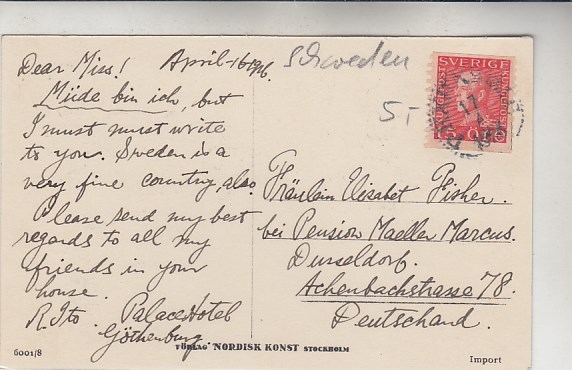 Dear Miss! April-16
Müde bin ich, but
I must must write
to you. Sweden is a
very fine country, also.
Please send my best
regards to all my
friends in your
house.
R. Ito. Palace Hotel
Göthenburg
6001/8
Sweden
5-
SVERIGE
Fräulein Elisabet Fisher.
bei Pension Maeller Marcus.
Dusseldorf.
Achenbachstrasse 78.
Deutschand.
FÖRLAG NORDISK KONST STOCKHOLM
Import